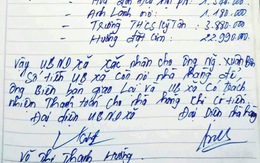 - Anh Lành nợ: 1.180.000
- Trường THCS Kỳ Tân: 3.880.000
- Hướng đặt cơm: 22.990.000
Vậy UBND xã xác nhận cho ông Ng. Xuân Biên
Số tiền UB xã còn nợ nhà hàng để
ông Biên bàn giao lại và UB xã có trách
nhiệm thanh toán cho nhà hàng chi có tiền.
Đại diện UBND xã Đại diện nhà hàng
Võ Thị Thanh Hương